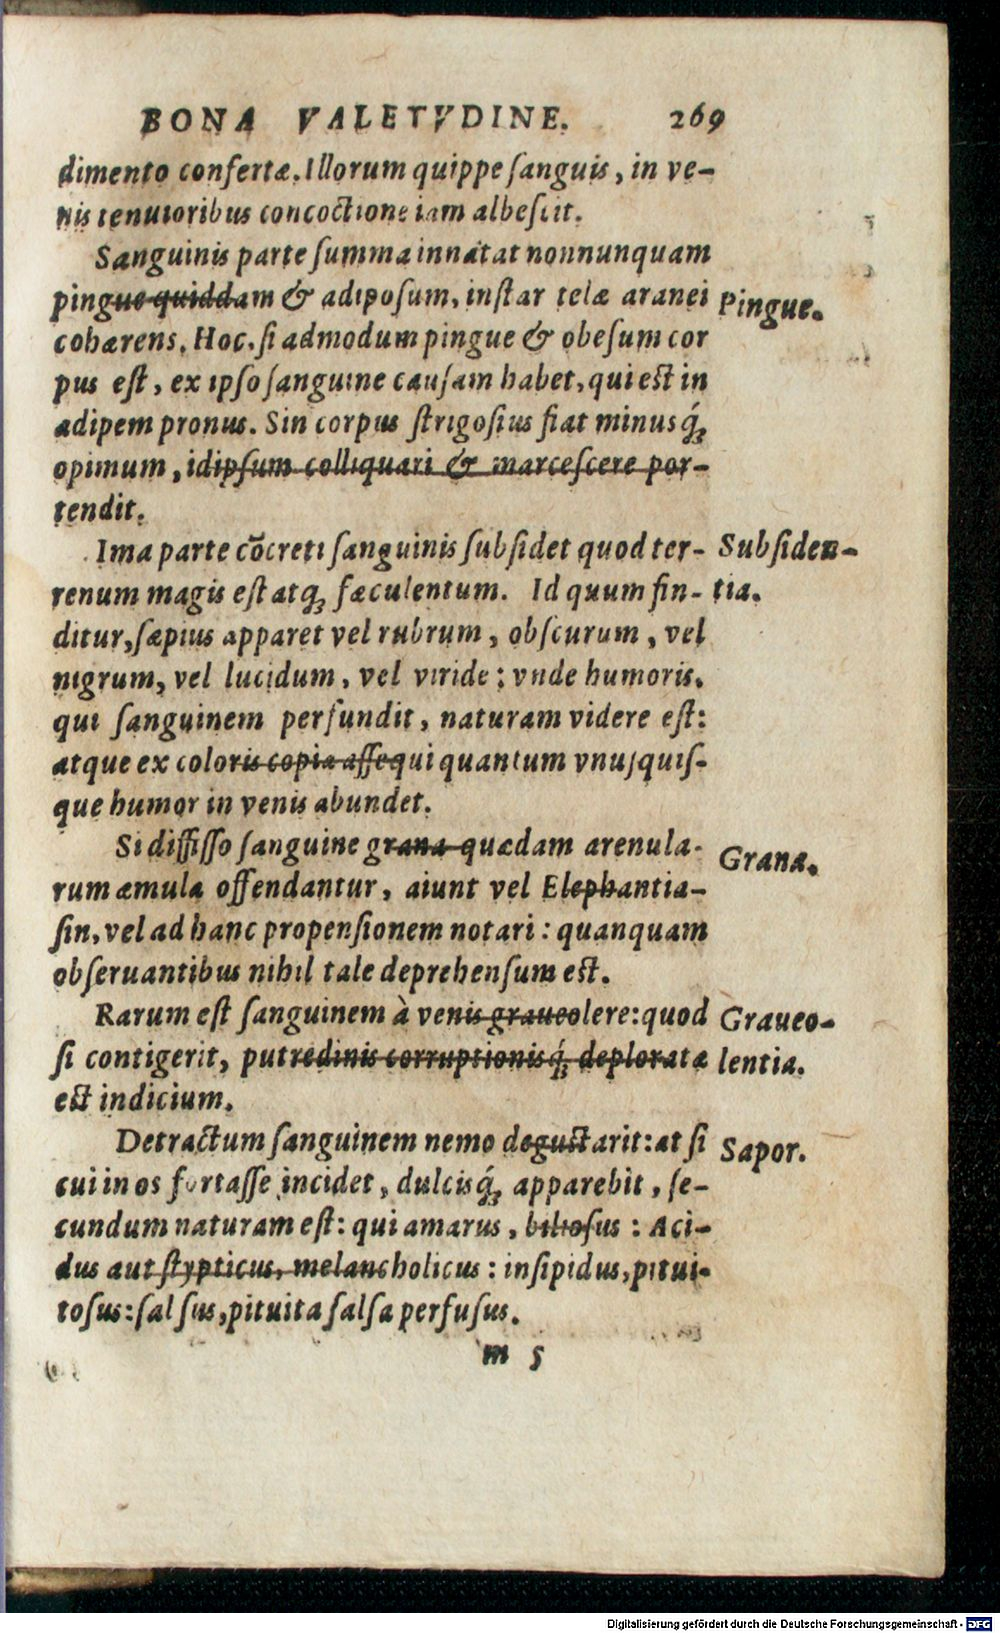 BONA VALETVDINE. 269
dimento confertæ. Illorum quippe sanguis, in ve-
nis tenuioribus concoctione iam albescit.
Sanguinis parte summa innatat nonnunquam
pingue quiddam & adiposum, instar telæ aranei
Pingue.
cohærens. Hoc, si admodum pingue & obesum cor
pus est, ex ipso sanguine causam habet, qui est in
adipem pronus. Sin corpus strigosius fiat minusq́;
opimum, idipsum colliquari & marcescere por-
tendit.
Ima parte cōcreti sanguinis subsidet quod ter-
Subsiden-
renum magis est atq; fæculentum. Id quum fin-
tia.
ditur, sæpius apparet vel rubrum, obscurum, vel
nigrum, vel lucidum, vel viride: vnde humoris,
qui sanguinem perfundit, naturam videre est:
atque ex coloris copia assequi quantum vnusquis-
que humor in venis abundet.
Si dississo sanguine grana quædam arenula-
Grana.
rum æmula offendantur, aiunt vel Elephantia-
sin, vel ad hanc propensionem notari: quanquam
obseruantibus nihil tale deprehensum est.
Rarum est sanguinem à venis graueolere: quod
Graueo-
si contigerit, putredinis corruptionisq́; deploratæ
lentia.
est indicium.
Detractum sanguinem nemo degustarit: at si
Sapor.
cui in os fortasse incidet, dulcisq́; apparebit, se-
cundum naturam est: qui amarus, biliosus: Aci-
dus aut stypticus, melancholicus: insipidus, pitui-
tosus: salsus, pituita salsa perfusus.
m 5
Digitalisierung gefördert durch die Deutsche Forschungsgemeinschaft - DFG